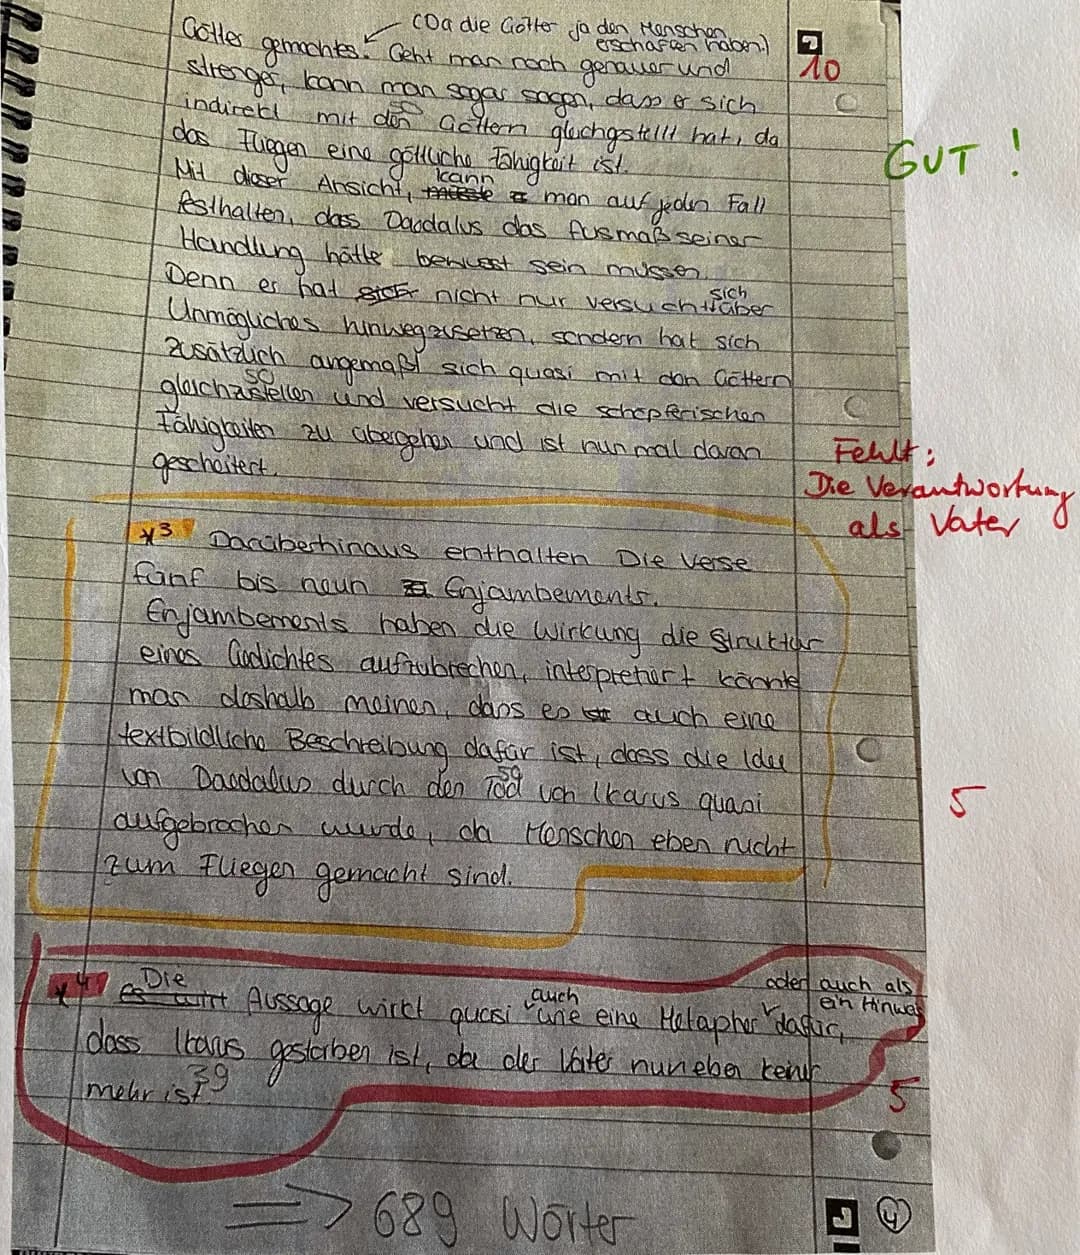 (Da die Götter ja den Menschen
erschaffen haben.)
Götter gemachtes. Geht man noch genauer und
10
strenger, kann man sogar sagen, dass er sich
50
indirekt mit den Göttern gleichgstellt hat, da
das Fliegen eine göttliche Fähigkeit ist.
GUT !
kann
Mit dieser Ansicht, man auf jeden Fall
festhalten, dass Daedalus das Ausmaß seiner
Handlung hätte bewusst sein müssen.
sich
Denn er hat nicht nur versucht über
Unmögliches hinwegzusetzen, sondern hat sich
zusätzlich angemaßt sich quasi mit den Göttern
50
gleichzustellen und versucht die schöpferischen
Fähigkeiten zu übergehen und ist nun mal daran
gescheitert.
Fehlt:
Die Verantwortung
als Vater
*3 Darüberhinaus enthalten Die Verse
fünf bis neun Enjambements.
Enjambements haben die Wirkung die Struktur
eines Gedichtes aufzubrechen, interpretiert könnte
man deshalb meinen, dass es auch eine
textbildliche Beschreibung dafür ist, dass die Idee
59
von Daedalus durch den Tod von Ikarus quasi
5
aufgebrochen wurde, da Menschen eben nicht
zum Fliegen gemacht sind.
*4 Die
oder auch als
ein Hinweis
auch
Aussage wirkt quasi wie eine Metapher dafür,
dass Ikarus gestorben ist, da der Vater nun eben keiner
39
mehr ist.
5
=> 689 Wörter
4